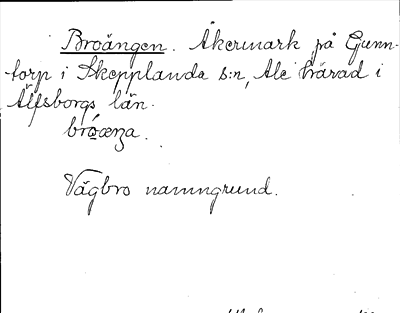 Broängen. Åkermark på Gunn-
torp i Skepplanda s:n, Ale härad i
Älfsborgs län.
bróæŋa.
Vägbro namngrund.